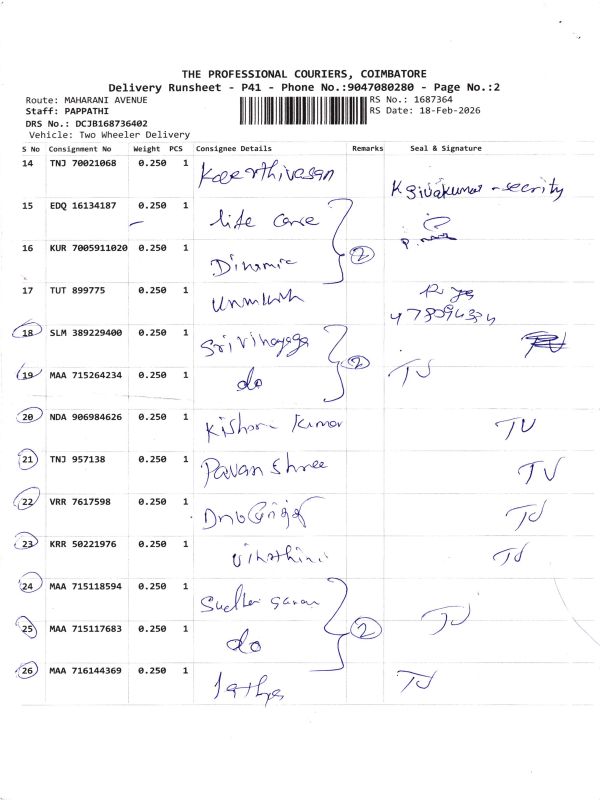 THE PROFESSIONAL COURIERS, COIMBATORE
Delivery Runsheet - P41 - Phone No.:9047080280 - Page No.:2
Route: MAHARANI AVENUE RS No.: 1687364
Staff: PAPPATHI RS Date: 18-Feb-2026
DRS No.: DCJB168736402
Vehicle: Two Wheeler Delivery
S No Consignment No Weight PCS Consignee Details Remarks Seal & Signature
14 TNJ 70021068 0.250 1 Keerthivasan K Sivakumar - secrity
15 EDQ 16134187 0.250 1 life care
16 KUR 7005911020 0.250 1 Dinamic 2
17 TUT 899775 0.250 1
18 SLM 389229400 0.250 1 Sri Vinayaga
19 MAA 715264234 0.250 1 do 2 TV
20 NDA 906984626 0.250 1 Kishore Kumar TV
21 TNJ 957138 0.250 1 Pavan Shree TV
22 VRR 7617598 0.250 1 TV
23 KRR 50221976 0.250 1 TV
24 MAA 715118594 0.250 1 TV
25 MAA 715117683 0.250 1 do 2
26 MAA 716144369 0.250 1 TV